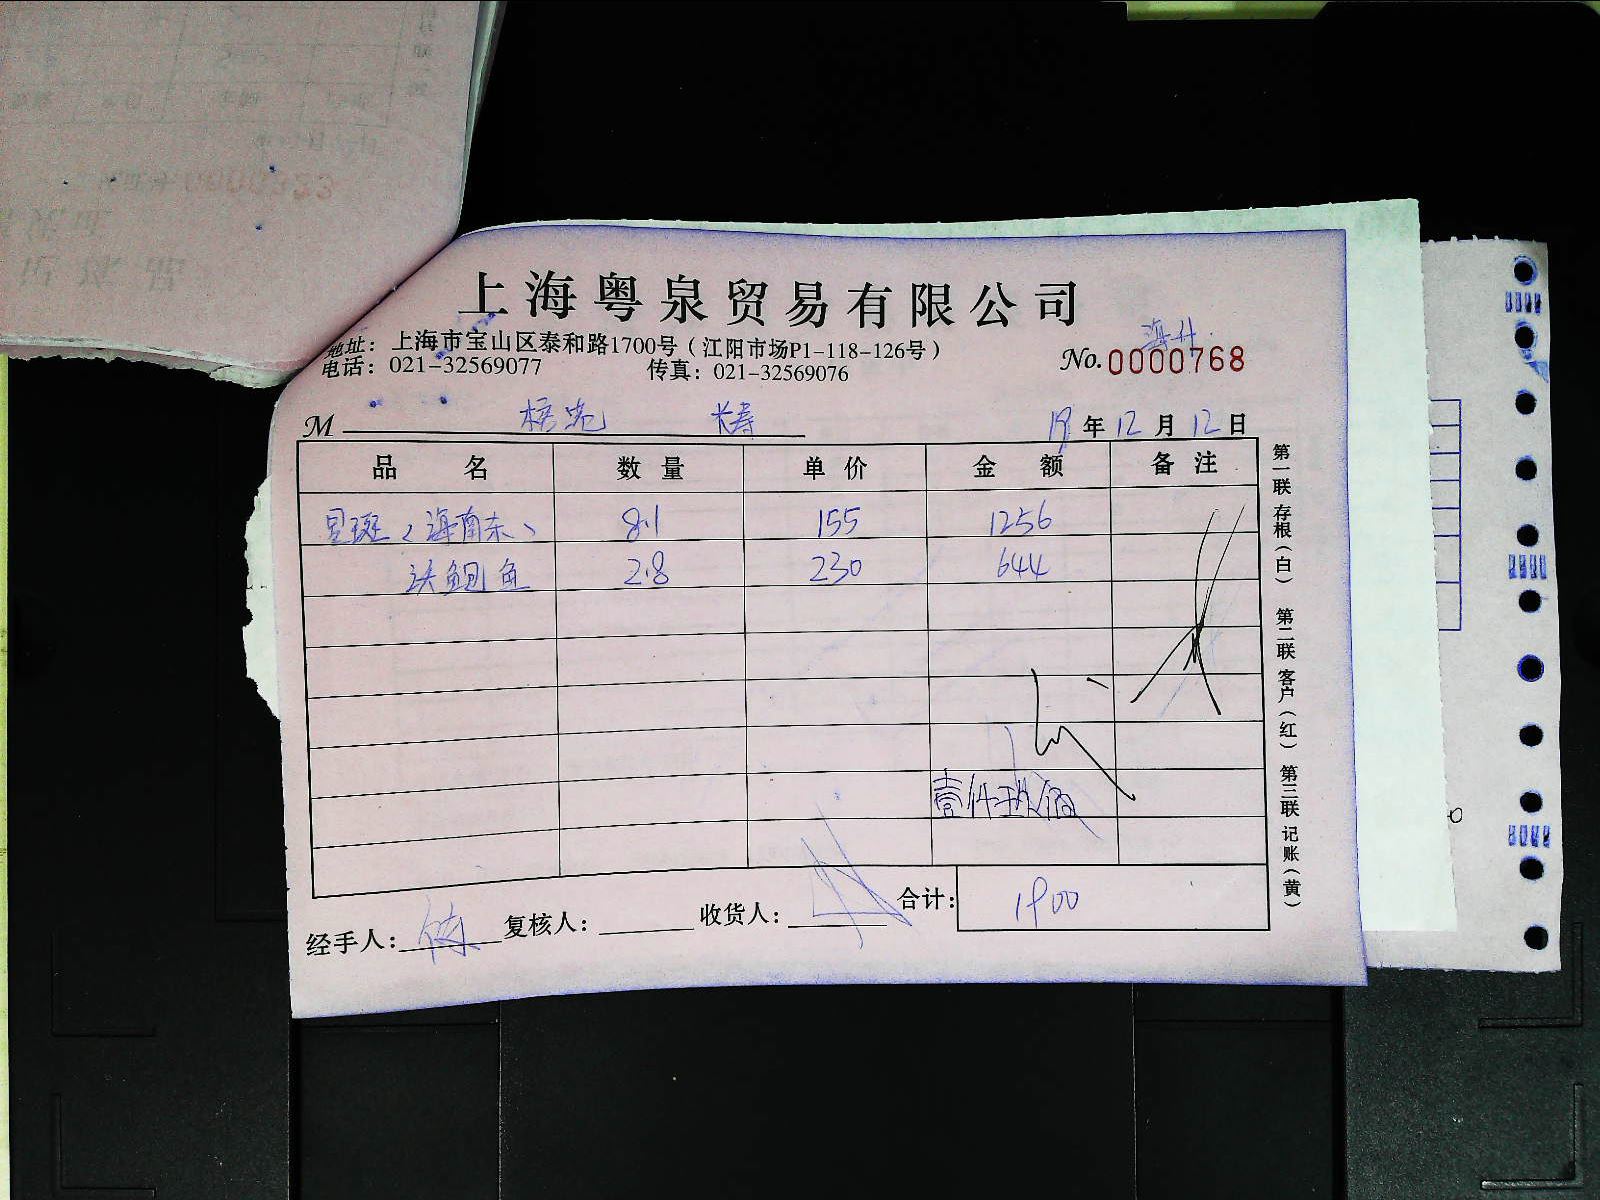 上海粤泉贸易有限公司
地址：上海市宝山区泰和路1700号（江阳市场P1-118-126号）
电话：021-32569077 传真：021-32569076
No.0000768
M 长寿 19年12月12日
品名 数量 单价 金额 备注
星斑（海南东） 8.1 155 1256
鱼 2.8 230 644
壹仟玖佰
合计：1900
经手人： 复核人： 收货人：
第一联 存根（白） 第二联 客户（红） 第三联 记账（黄）